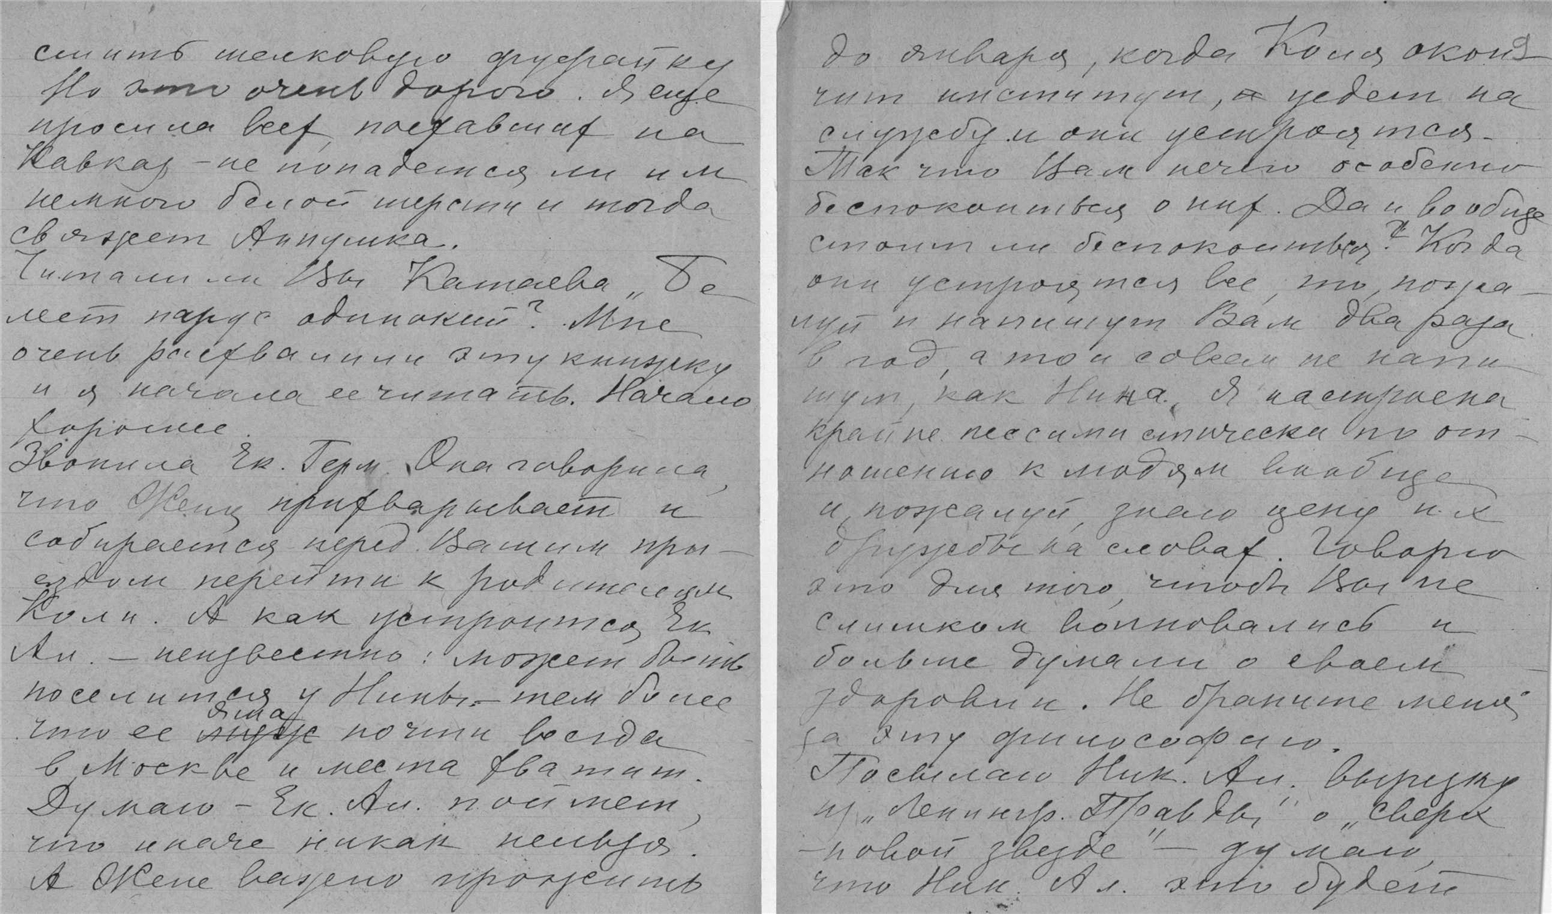 сшить шелковую фуфайку
Но это очень дорого. Я еще
просила всех, поехавших на
Кавказ – не попадется ли им
немного белой шерсти и тогда
свяжет Аннушка.
Читали ли Вы Катаева „Бе-
леет парус одинокий"? Мне
очень расхвалили эту книжку
и я начала ее читать. Начало
хорошее.
Звонила Ек. Герм. Она говорила,
что Женя прихварывает и
собирается перед Вашим при-
ездом перейти к родителям
Коли. А как устроится Ек.
Ал. – неизвестно: может быть
поселится у Нины – тем более
что ее муж почти всегда
в Москве и места хватит.
Думаю – Ек. Ал. поймет,
что иначе никак нельзя.
А Жене важно прожить
до января, когда Коля окон-
чит институт, уедет на
службу и они устроятся.
Так что Вам нечего особенно
беспокоиться о них. Да и вообще
стоит ли беспокоиться? Когда
они устроятся все, то, пожа-
луй и напишут Вам два раза
в год, а то и совсем не напи-
шут, как Нина. Я настроена
крайне пессимистически по от-
ношению к людям вообще
и, пожалуй, знаю цену их
дружбы на словах. Говорю
это для того, чтобы Вы не
слишком волновались и
больше думали о своем
здоровьи. Не браните меня
за эту философию.
Посылаю Ник. Ал. вырезку
из „Ленингр. Правды" о „сверх
новой звезде" – думаю,
что Ник. Ал. это будет